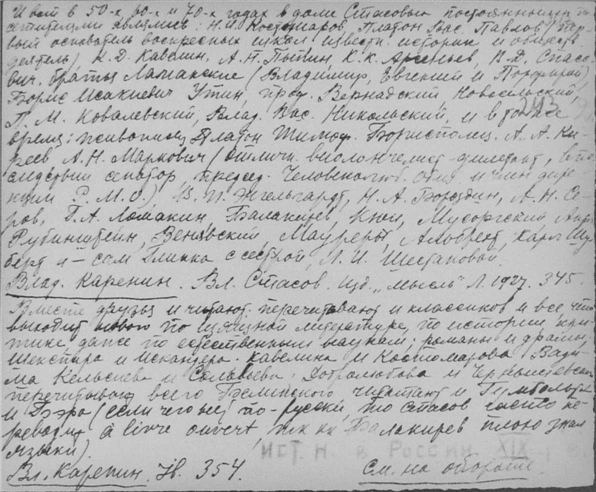 И вот в 50-х 60-х и 70-х годах в доме Стасовых постоянными по-
сетителями являлись: Н.И. Костомаров, Платон Вас. Павлов / пер-
вый основатель воскресных школ и известн. историк и обществ.
деятель /, К.Д. Кавелин, А.Н. Пыпин, К.К. Арсеньев, В.Д. Спасо-
вич, братья Ламанские / Владимир, Евгений и Порфирий /,
Борис Исакиевич Утин, проф. Вернадский, Новосельский,
П.М. Ковалевский, Влад. Вас. Никольский, и в то же
243
время: живописец Платон Тимоф. Борисполец, А.А. Ки-
реев А.Н. Маркович / отличн. виолончелист-дилетант, впо-
следствии сенатор, председ. Человеколюб. общ. и член дирек-
ции Р.М.О. /, В.П. Энгельгардт, Н.А. Бороздин, А.Н. Се-
ров, Г.А. Ломакин, Балакирев, Кюи, Мусоргский, Ант.
Рубинштейн, Венявский, Мауреры, Альбрехт, Карл Шу-
берт и - сам Глинка с сестрой, Л.И. Шестаковой.
Влад. Каренин. Вл. Стасов. Изд. „Мысль" Л. 1927. 345.
Вместе друзья и читают: перечитывают и классиков и все что
выходит нового по изящной литературе, по истории, кри-
тике, даже по естественным наукам; романы и драмы,
Шекспира и Искандера, Кавелина и Костомарова, Вади-
ма Кельсиева и Соловьева, Добролюбова и Чернышевского
перечитывают всего Белинского, читают и Гумбольдта
и Бэра / если чего нет по-русски, то Стасов часто пе-
реводит à livre ouvert, так как Балакирев плохо знал
языки /.
ист. н. в России XIX
Вл. Каренин. 354. См. на обороте.